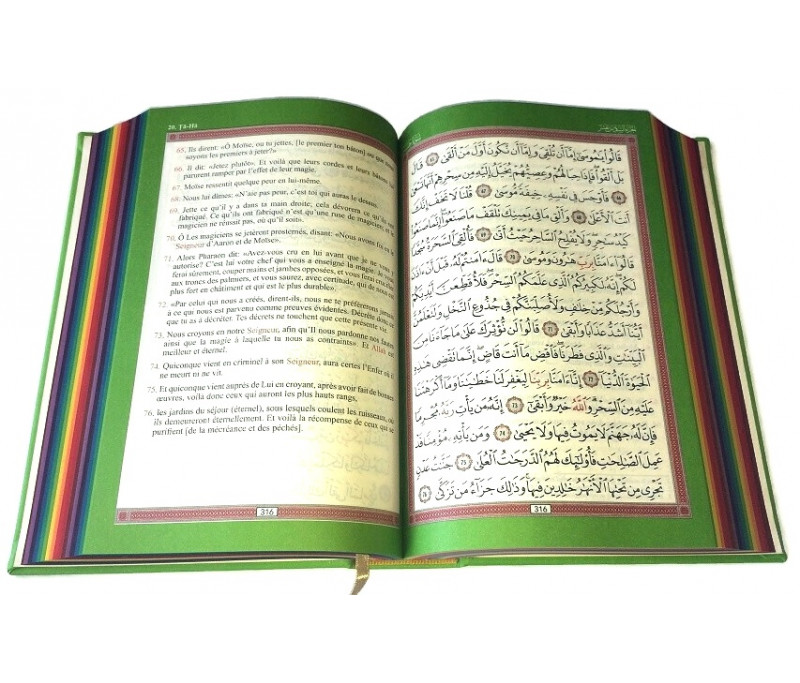 20. Tâ-Hâ
65. Ils dirent: «Ô Moïse, ou tu jettes, [le premier ton bâton] ou que nous
soyons les premiers à jeter?»
66. Il dit: «Jetez plutôt». Et voilà que leurs cordes et leurs bâtons lui
parurent ramper par l'effet de leur magie.
67. Moïse ressentit quelque peur en lui-même.
68. Nous lui dîmes: «N'aie pas peur, c'est toi qui auras le dessus.
69. Jette ce qu'il y a dans ta main droite, cela dévorera ce qu'ils ont
fabriqué. Ce qu'ils ont fabriqué n'est qu'une ruse de magicien; et le
magicien ne réussit pas, où qu'il soit».
70. Ô Les magiciens se jetèrent prosternés, disant: «Nous avons foi en le
Seigneur d'Aaron et de Moïse».
71. Alors Pharaon dit: «Avez-vous cru en lui avant que je ne vous y
autorise? C'est lui votre chef qui vous a enseigné la magie. Je vous
ferai sûrement, couper mains et jambes opposées, et vous ferai crucifier
aux troncs des palmiers, et vous saurez, avec certitude, qui de nous est
plus fort en châtiment et qui est le plus durable».
72. «Par celui qui nous a créés, dirent-ils, nous ne te préférerons jamais
à ce qui nous est parvenu comme preuves évidentes. Décrète donc ce
que tu as à décréter. Tes décrets ne touchent que cette présente vie.
73. Nous croyons en notre Seigneur, afin qu'Il nous pardonne nos fautes
ainsi que la magie à laquelle tu nous as contraints». Et Allah est
meilleur et éternel.
74. Quiconque vient en criminel à son Seigneur, aura certes l'Enfer où il
ne meurt ni ne vit.
75. Et quiconque vient auprès de Lui en croyant, après avoir fait de bonnes
œuvres, voilà donc ceux qui auront les plus hauts rangs,
76. les jardins du séjour (éternel), sous lesquels coulent les ruisseaux, où
ils demeureront éternellement. Et voilà la récompense de ceux qui se
purifient [de la mécréance et des péchés].
316
قَالُوا۟ يَٰمُوسَىٰٓ إِمَّآ أَن تُلْقِىَ وَإِمَّآ أَن نَّكُونَ أَوَّلَ مَنْ أَلْقَىٰ ٦٥ قَالَ
بَلْ أَلْقُوا۟ فَإِذَا حِبَالُهُمْ وَعِصِيُّهُمْ يُخَيَّلُ إِلَيْهِ مِن سِحْرِهِمْ أَنَّهَا تَسْعَىٰ
٦٦ فَأَوْجَسَ فِى نَفْسِهِۦ خِيفَةً مُّوسَىٰ ٦٧ قُلْنَا لَا تَخَفْ إِنَّكَ
أَنتَ ٱلْأَعْلَىٰ ٦٨ وَأَلْقِ مَا فِى يَمِينِكَ تَلْقَفْ مَا صَنَعُوٓا۟ إِنَّمَا صَنَعُوا۟
كَيْدُ سَٰحِرٍ وَلَا يُفْلِحُ ٱلسَّاحِرُ حَيْثُ أَتَىٰ ٦٩ فَأُلْقِىَ ٱلسَّحَرَةُ سُجَّدًا
قَالُوٓا۟ ءَامَنَّا بِرَبِّ هَٰرُونَ وَمُوسَىٰ ٧٠ قَالَ ءَامَنتُمْ لَهُۥ قَبْلَ أَنْ ءَاذَنَ
لَكُمْ إِنَّهُۥ لَكَبِيرُكُمُ ٱلَّذِى عَلَّمَكُمُ ٱلسِّحْرَ فَلَأُقَطِّعَنَّ أَيْدِيَكُمْ
وَأَرْجُلَكُم مِّنْ خِلَٰفٍ وَلَأُصَلِّبَنَّكُمْ فِى جُذُوعِ ٱلنَّخْلِ وَلَتَعْلَمُنَّ
أَيُّنَآ أَشَدُّ عَذَابًا وَأَبْقَىٰ ٧١ قَالُوا۟ لَن نُّؤْثِرَكَ عَلَىٰ مَا جَآءَنَا مِنَ
ٱلْبَيِّنَٰتِ وَٱلَّذِى فَطَرَنَا فَٱقْضِ مَآ أَنتَ قَاضٍ إِنَّمَا تَقْضِى هَٰذِهِ
ٱلْحَيَوٰةَ ٱلدُّنْيَآ ٧٢ إِنَّآ ءَامَنَّا بِرَبِّنَا لِيَغْفِرَ لَنَا خَطَٰيَٰنَا وَمَآ أَكْرَهْتَنَا
عَلَيْهِ مِنَ ٱلسِّحْرِ وَٱللَّهُ خَيْرٌ وَأَبْقَىٰٓ ٧٣ إِنَّهُۥ مَن يَأْتِ رَبَّهُۥ مُجْرِمًا
فَإِنَّ لَهُۥ جَهَنَّمَ لَا يَمُوتُ فِيهَا وَلَا يَحْيَىٰ ٧٤ وَمَن يَأْتِهِۦ مُؤْمِنًا قَدْ
عَمِلَ ٱلصَّٰلِحَٰتِ فَأُو۟لَٰٓئِكَ لَهُمُ ٱلدَّرَجَٰتُ ٱلْعُلَىٰ ٧٥ جَنَّٰتُ عَدْنٍ
تَجْرِى مِن تَحْتِهَا ٱلْأَنْهَٰرُ خَٰلِدِينَ فِيهَا وَذَٰلِكَ جَزَآءُ مَن تَزَكَّىٰ ٧٦
316